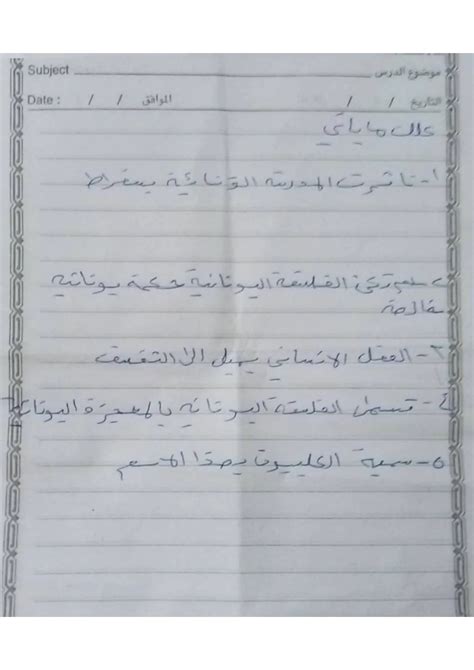 Subject موضوع الدرس
Date : / / الموافق / / التاريخ / /
علل ما يأتي
١- تأثرت المدرسة الرواقية بسقراط
٢- لم تكن الفلسفة اليونانية حكمة يونانية
خالصة
٣- العقل الانساني يميل الى التفلسف
٤- تسمى الفلسفة اليونانية بالمعجزة اليونانية
٥- سمية الكلبيون بهذا الاسم